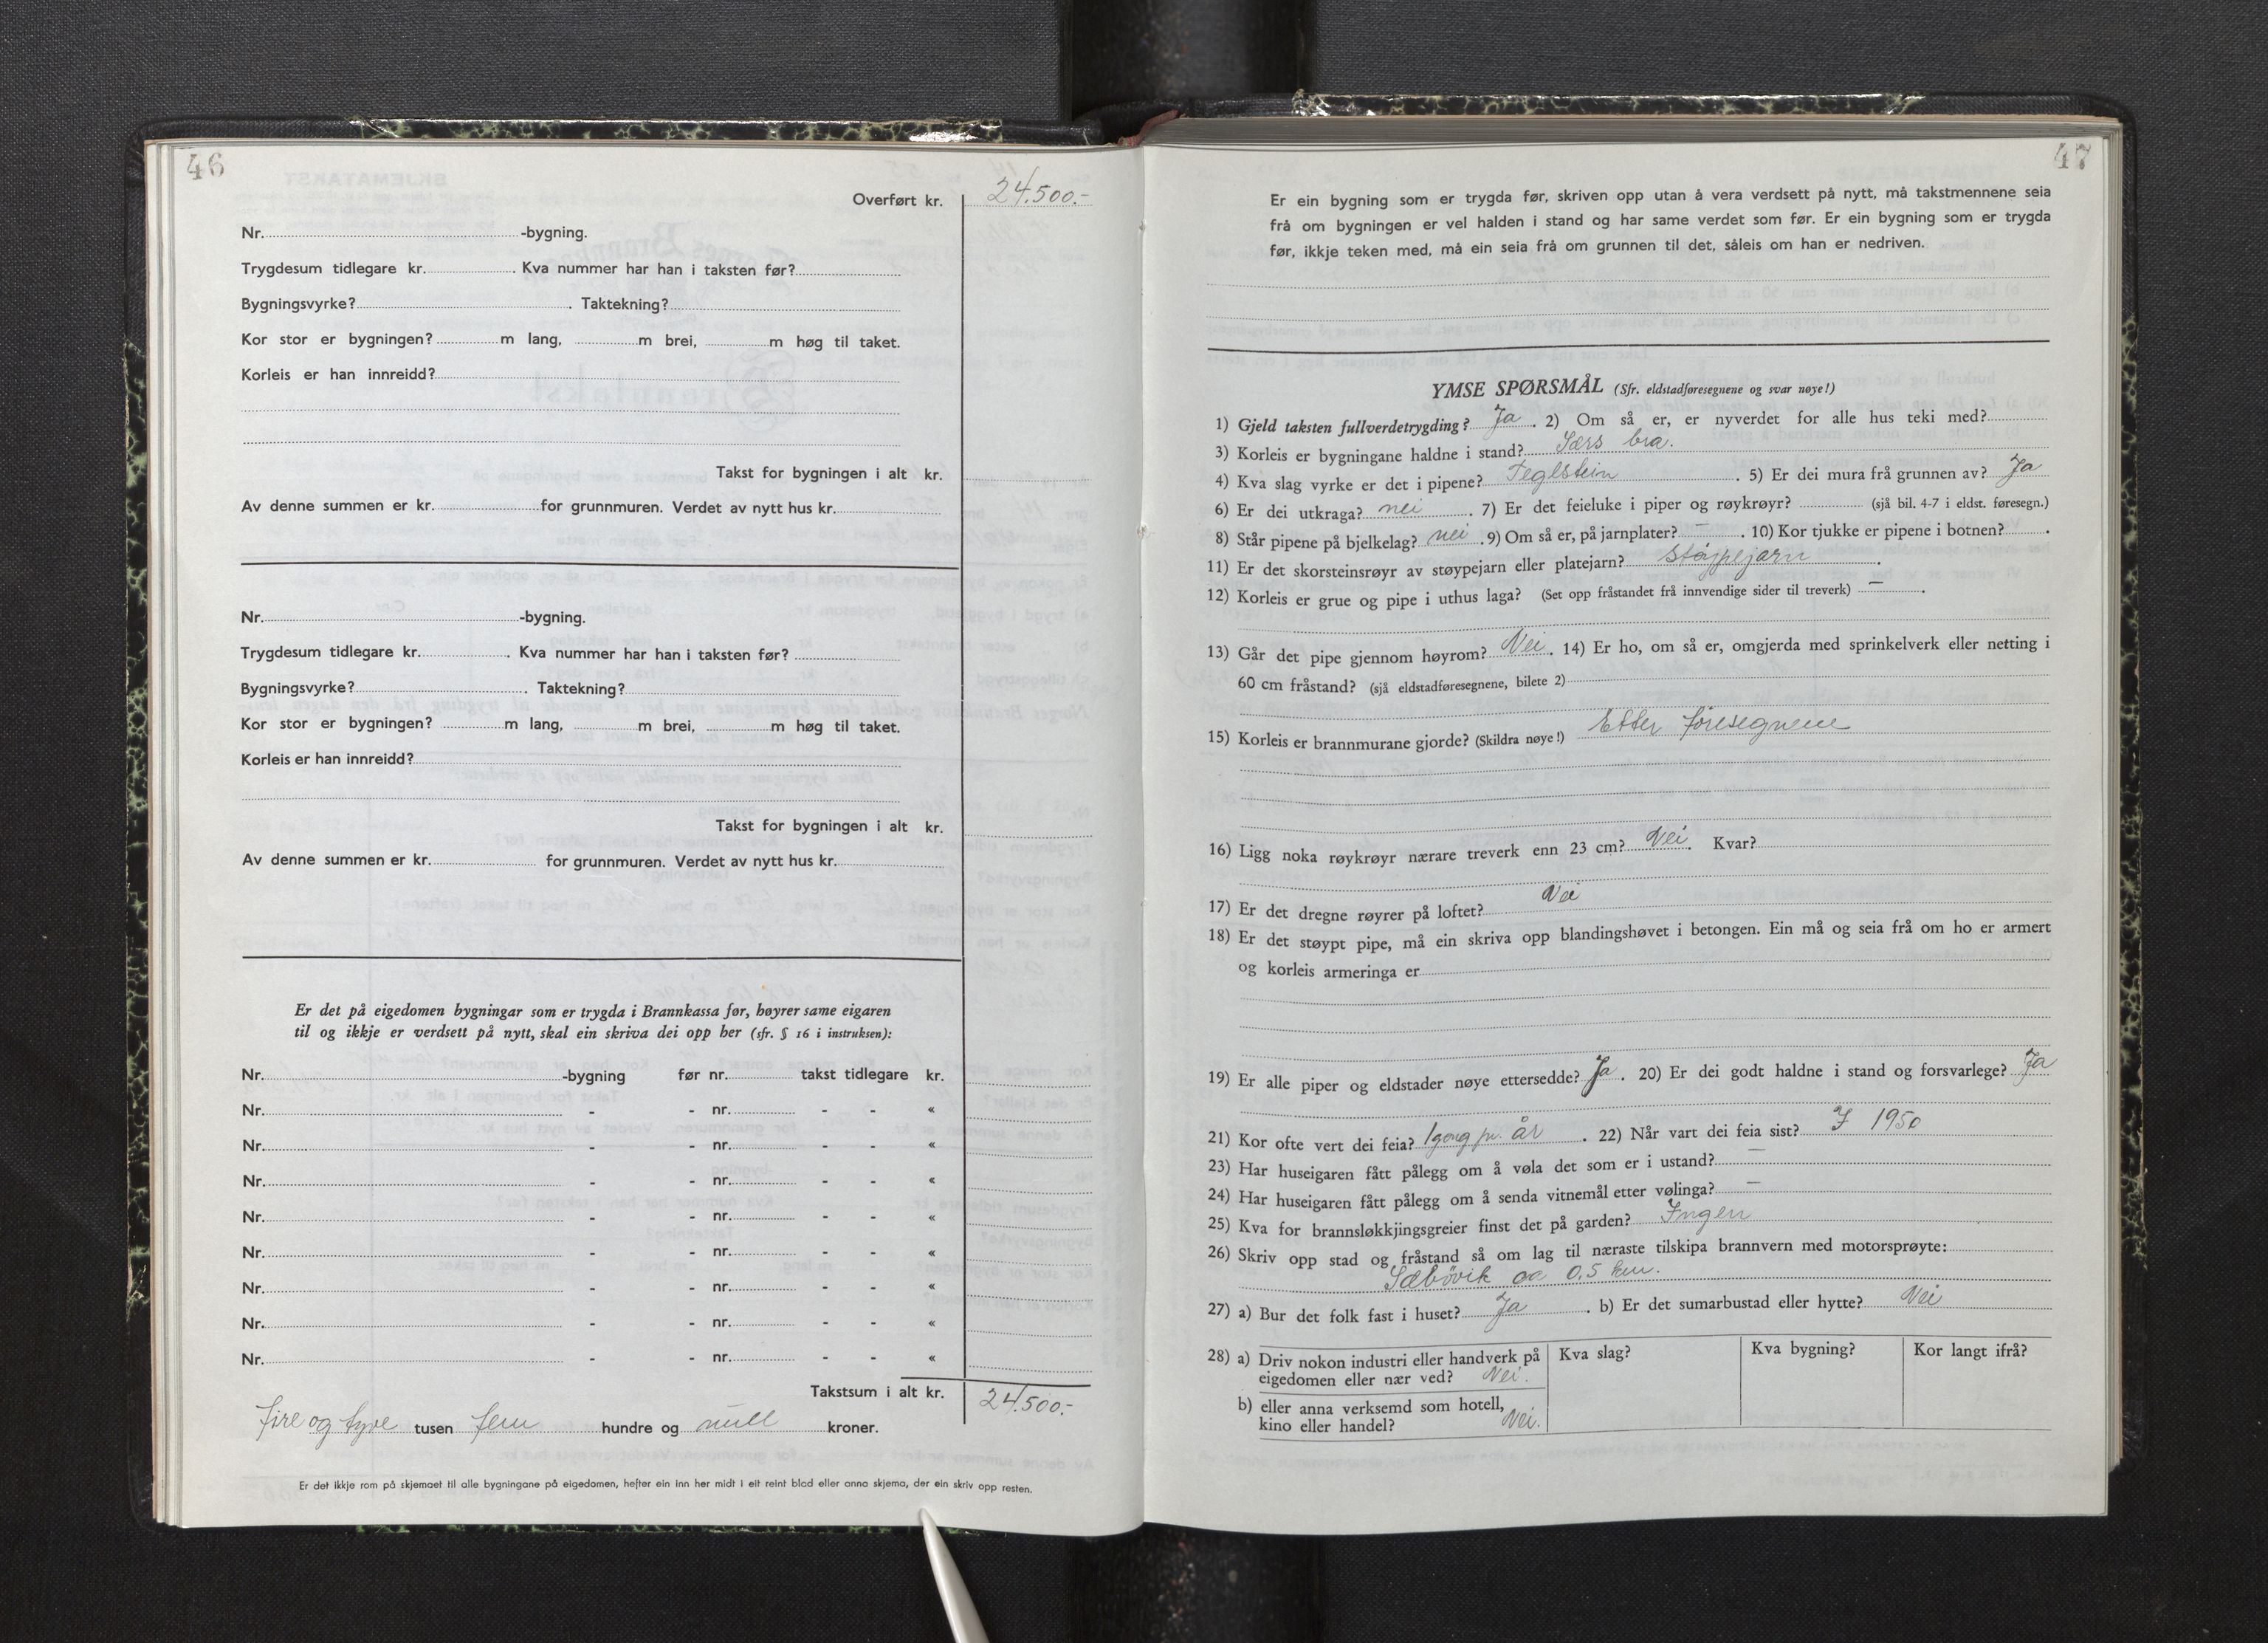 46
Overført kr. 24.500.-
Nr. -bygning.
Trygdesum tidlegare kr. . Kva nummer har han i taksten før?
Bygningsvyrke? . Taktekning?
Kor stor er bygningen? m lang, m brei, m høg til taket.
Korleis er han innreidd?
Takst for bygningen i alt kr.
Av denne summen er kr. for grunnmuren. Verdet av nytt hus kr.
Nr. -bygning.
Trygdesum tidlegare kr. . Kva nummer har han i taksten før?
Bygningsvyrke? . Taktekning?
Kor stor er bygningen? m lang, m brei, m høg til taket.
Korleis er han innreidd?
Takst for bygningen i alt kr.
Av denne summen er kr. for grunnmuren. Verdet av nytt hus kr.
Er det på eigedomen bygningar som er trygda i Brannkassa før, høyrer same eigaren
til og ikkje er verdsett på nytt, skal ein skriva dei opp her (sfr. § 16 i instruksen):
Nr. -bygning før nr. takst tidlegare kr.
Nr. - - nr. - - «
Nr. - - nr. - - «
Nr. - - nr. - - «
Nr. - - nr. - - «
Nr. - - nr. - - «
Nr. - - nr. - - «
Nr. - - nr. - - «
Nr. - - nr. - - «
Takstsum i alt kr. 24.500.-
fire og tyve tusen fem hundre og null kroner.
Er det ikkje rom på skjemaet til alle bygningane på eigedomen, hefter ein inn her midt i eit reint blad eller anna skjema, der ein skriv opp resten.
47
Er ein bygning som er trygda før, skriven opp utan å vera verdsett på nytt, må takstmennene seia
frå om bygningen er vel halden i stand og har same verdet som før. Er ein bygning som er trygda
før, ikkje teken med, må ein seia frå om grunnen til det, såleis om han er nedriven.
YMSE SPØRSMÅL (Sfr. eldstadføresegnene og svar nøye!)
1) Gjeld taksten fullverdetrygding? Ja . 2) Om så er, er nyverdet for alle hus teki med?
3) Korleis er bygningane haldne i stand? Særs bra.
4) Kva slag vyrke er det i pipene? Teglstein . 5) Er dei mura frå grunnen av? Ja
6) Er dei utkraga? nei . 7) Er det feieluke i piper og røykrøyr? (sjå bil. 4-7 i eldst. føresegn.)
8) Står pipene på bjelkelag? nei . 9) Om så er, på jarnplater? — . 10) Kor tjukke er pipene i botnen? .
11) Er det skorsteinsrøyr av støypejarn eller platejarn? Støypejarn .
12) Korleis er grue og pipe i uthus laga? (Set opp fråstandet frå innvendige sider til treverk) — .
13) Går det pipe gjennom høyrom? Nei . 14) Er ho, om så er, omgjerda med sprinkelverk eller netting i
60 cm fråstand? (sjå eldstadføresegnene, bilete 2)
15) Korleis er brannmurane gjorde? (Skildra nøye!) Etter føresegnene
16) Ligg noka røykrøyr nærare treverk enn 23 cm? Nei. Kvar?
17) Er det dregne røyrer på loftet? Nei
18) Er det støypt pipe, må ein skriva opp blandingshøvet i betongen. Ein må og seia frå om ho er armert
og korleis armeringa er
19) Er alle piper og eldstader nøye ettersedde? Ja . 20) Er dei godt haldne i stand og forsvarlege? Ja
21) Kor ofte vert dei feia? 1 gong pr. år . 22) Når vart dei feia sist? I 1950
23) Har huseigaren fått pålegg om å vøla det som er i ustand? —
24) Har huseigaren fått pålegg om å senda vitnemål etter vølinga? —
25) Kva for brannsløkkjingsgreier finst det på garden? Ingen
26) Skriv opp stad og fråstand så om lag til næraste tilskipa brannvern med motorsprøyte:
Sæbövik ca 0,5 km.
27) a) Bur det folk fast i huset? Ja . b) Er det sumarbustad eller hytte? Nei
28) a) Driv nokon industri eller handverk på Kva slag? Kva bygning? Kor langt ifrå?
eigedomen eller nær ved? Nei.
b) eller anna verksemd som hotell,
kino eller handel? Nei.